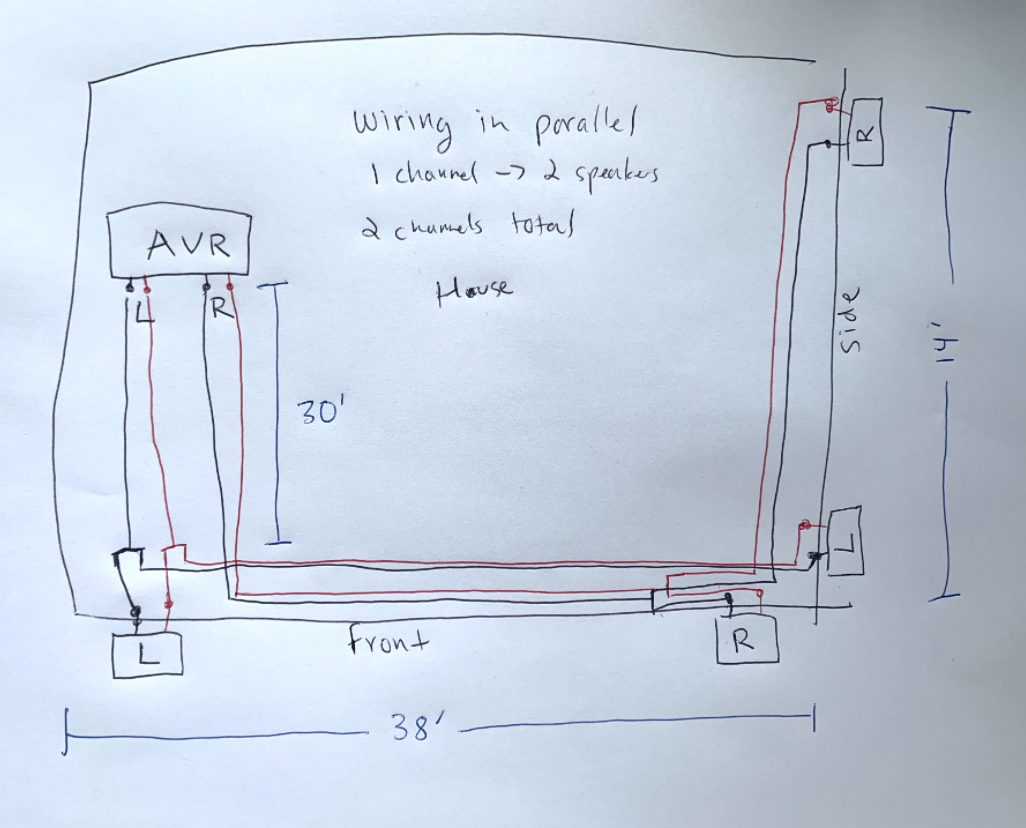 Wiring in parallel
1 channel -> 2 speakers
2 channels total
House
AVR
L
R
30'
R
Side
14'
L
L
Front
R
38'